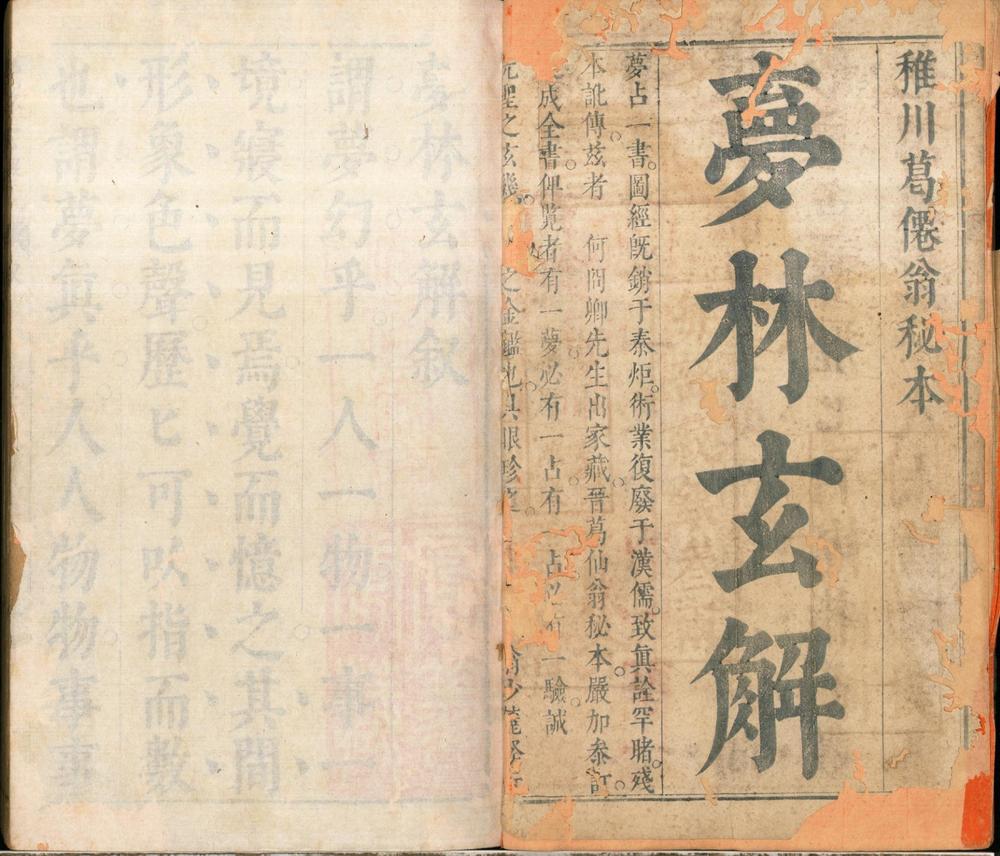 稚川葛僊翁秘本
夢林玄解
夢占一書圖經旣銷于秦炬術業復廢于漢儒致眞詮罕睹殘
本訛傳茲者　何問卿先生出家藏晉葛仙翁秘本嚴加叅訂
成全書俾覽者有一夢必有一占有一占必有一驗誠
之玄 之金鑑也具眼珍之
夢林玄解敘
謂夢幻乎一人一物一事一
境寢而見焉覺而憶之其間
形象色聲歷匕可以指而數
也謂夢眞乎人人物物事事